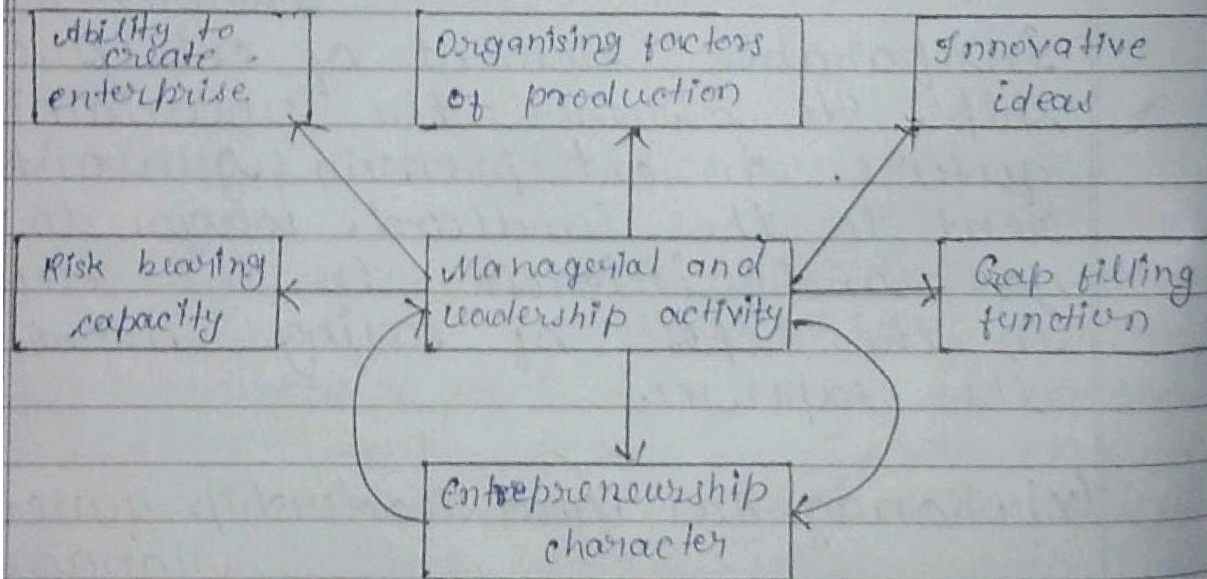 Ability to
create
enterprise
Organising factors
of production
Innovative
ideas
Risk bearing
capacity
Managerial and
leadership activity
Gap filling
function
Entrepreneurship
character